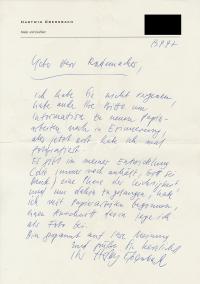 HARTWIG EBERSBACH
Lieber Herr Rademacher,
ich habe Sie nicht vergessen,
habe auch Ihre Bitte um
Information zu neuen Papier-
arbeiten noch in Erinnerung,
aber jetzt erst habe ich mal
fotografiert
Es gibt in meiner Entwicklung
(die immer noch anhält, Gott sei
Dank) eine Phase der Leichtigkeit
und um dahin zu gelangen, habe
ich mit Papierarbeiten begonnen,
einen Ausschnitt davon lege ich
als Foto bei.
Bin gespannt auf Ihre Meinung
und grüße Sie herzlich
Ihr Hartwig Ebersbach